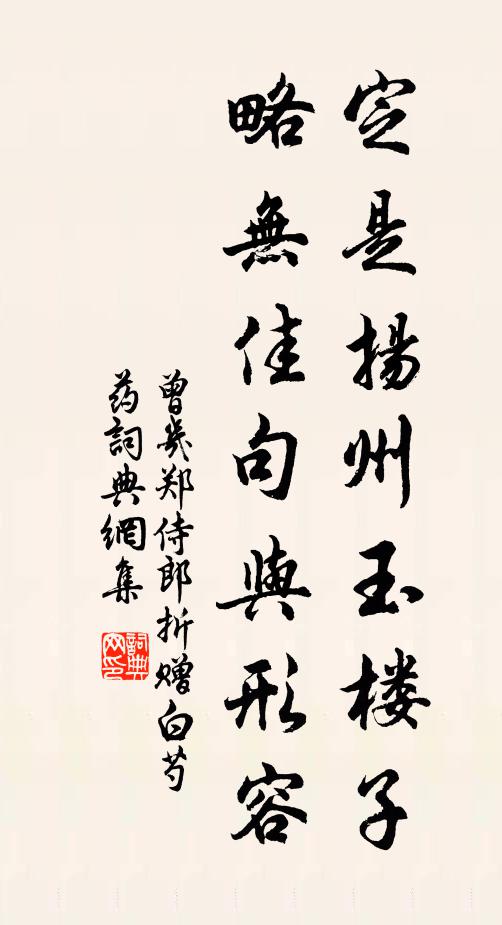 定是揚州玉楼子
略無佳句與形容
曾幾郑侍郎折赠白芍
药詞典網集
詞典网印